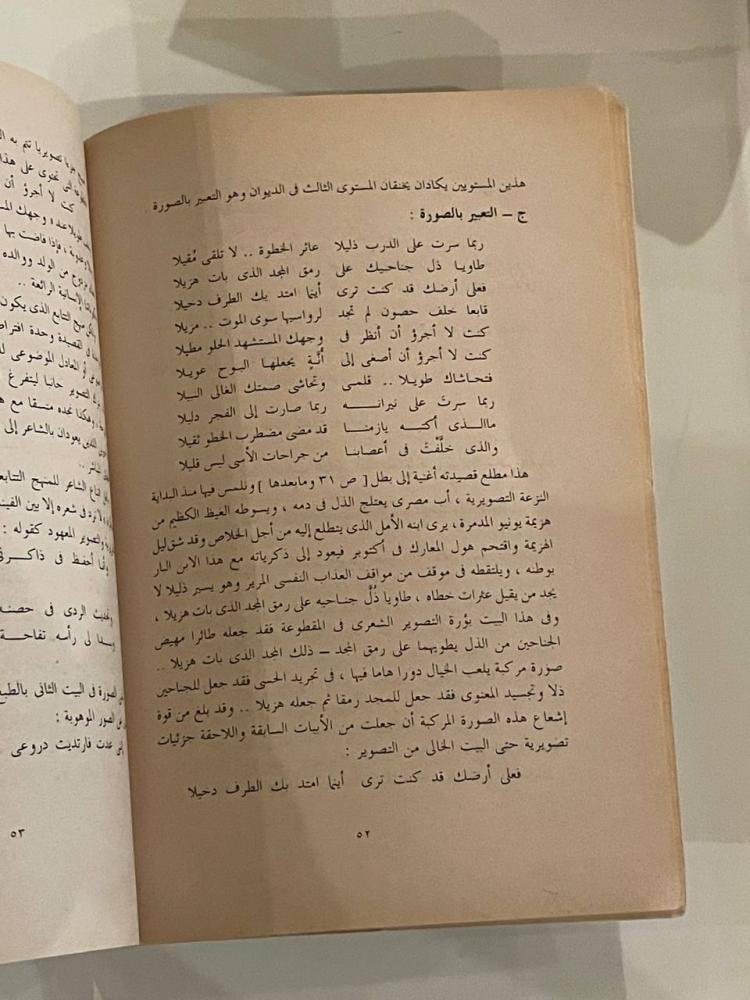 هذين المستويين يكادان يخنقان المستوى الثالث فى الديوان وهو التعبير بالصورة .
ج – التعبير بالصورة :
ربما سرت على الدرب ذليلا عاثر الخطوة .. لا تلقى مُقيلا
طاويا ذل جناحيك على رمق المجد الذى بات هزيلا
فعلى أرضك قد كنت ترى أينما امتد بك الطرف دخيلا
قابعا خلف حصون لم تجد لرواسيها سوى الموت .. مزيلا
كنت لا أجرؤ أن أنظر فى وجهك المستشهد الحلو مطيلا
كنت لا أجرؤ أن أصغى إلى أنَّةٍ يجعلها البوح عويلا
فتحاشاك طويلا .. قلمى وتحاشى صمتك الغالى النبيلا
ربما سرتَ على نيرانـــه ربما صارت إلى الفجر دليلا
ماالـذى أكتبه يازمنـا قد مضى مضطرب الخطو ثقيلا
والذى خلَّفْتَ فى أعصابنا من جراحات الأسى ليس قليلا
هذا مطلع قصيدته أغنية إلى بطل [ ص ٣١ ومابعدها ] ونلمس فيها منذ البداية
النزعة التصويرية ، أب مصرى يعتلج الذل فى دمه ، ويسوطه الغيظ الكظيم من
هزيمة يونيو المدمرة ، يرى ابنه الأمل الذى يتطلع إليه من أجل الخلاص وقد شق ليل
الهزيمة واقتحم هول المعارك فى أكتوبر فيعود إلى ذكرياته مع هذا الابن البار
بوطنه ، ويلتقطه فى موقف من مواقف العذاب النفسى المرير وهو يسير ذليلا لا
يجد من يقيل عثرات خطاه ، طاويا ذُلَّ جناحيه على رمق المجد الذى بات هزيلا ،
وفى هذا البيت بؤرة التصوير الشعرى فى المقطوعة فقد جعله طائرا مهيض
الجناحين من الذل يطويهما على رمق المجد – ذلك المجد الذى بات هزيلا ..
صورة مركبة يلعب الخيال دورا هاما فيها ، فى تجريد الحسى فقد جعل للجناحين
ذلا وتجسيد المعنوى فقد جعل للمجد رمقا ثم جعله هزيلا .. وقد بلغ من قوة
إشعاع هذه الصورة المركبة أن جعلت من الأبيات السابقة واللاحقة جزئيات
تصويرية حتى البيت الخالى من التصوير :
فعلى أرضك قد كنت ترى أينما امتد بك الطرف دخيلا
٥٢
تصويريا تتم به
تحتوى على هذا
كنت لا أجرؤ أن
وجهك
، فإذا فاضت بها
من الولد ووالده
الإنسانية الرائعة ..
التتابع الذى يكون
القصيدة وحدة
أو المعادل الموضوعى
التصوير جانبا ليتفرغ
وهكذا نجده متسقا مع
اللذين يعودان بالشاعر إلى
الشاعر للمنهج
فى شعره إلا بين
والتصوير المعهود كقوله :
أحفظ فى ذاكرتى
الردى فى حصنه
لى رأسه تفاحة
الصورة فى البيت الثانى بالطبع
الصور الموهوبة :
عدت فارتديت دروعى
٥٣